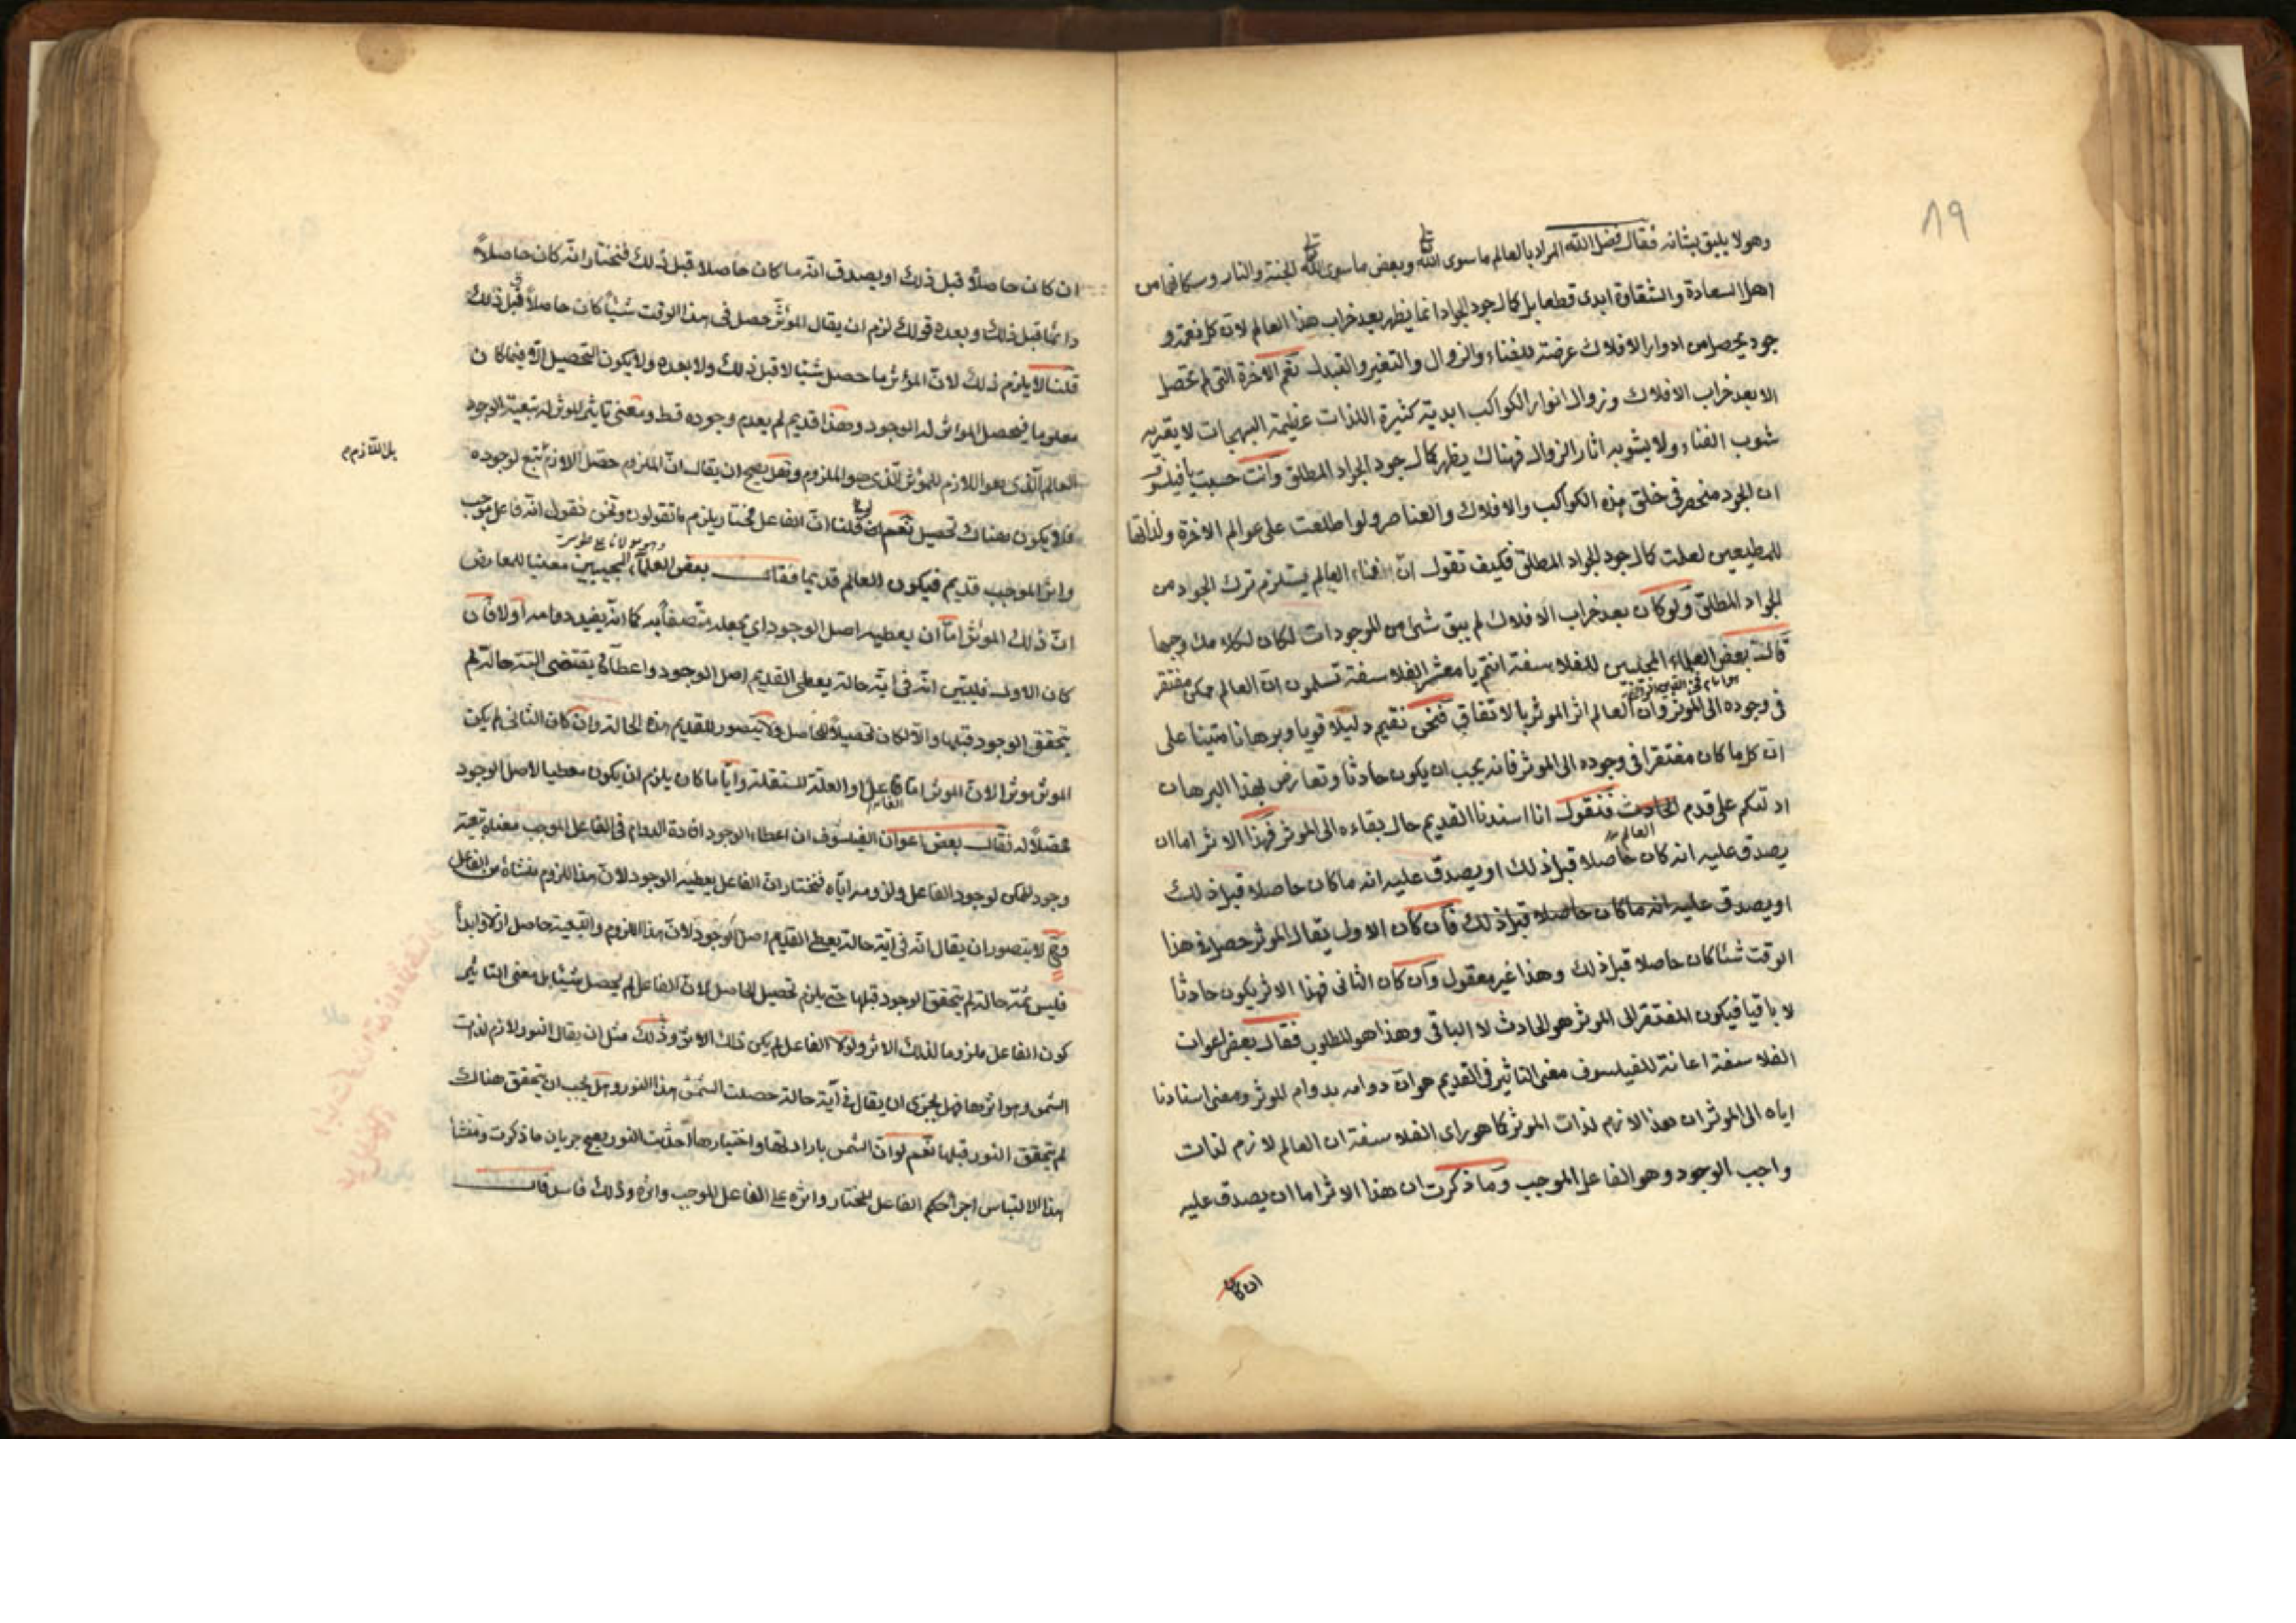 ٨٩
وهو لا يليق بشانه فقال فضل الله المراد بالعالم ما سوى الله تعالى وبعض ما سوى الله تعالى الجنة والنار وسكانهما من
اهل السعادة والشقاوة ابدى قطعا بل كمال جود الجواد انما يظهر بعد خراب هذا العالم لان كل نعمة و
جود يحصل من ادوار الافلاك عرضة للفناء والزوال والتغير والتبدل نعم الاخرة التى لم تحصل
الا بعد خراب الافلاك وزوال انوار الكواكب ابدية كثيرة اللذات عظيمة البهجات لا يعتريه
شوب الفناء ولا يشوبه اثار الزوال فهناك يظهر كمال جود الجواد المطلق وانت حسبت يا فيلسوف
ان الجود منحصر فى خلق هذه الكواكب والافلاك والعناصر ولو اطلعت على عوالم الاخرة ولذاتها
للمطيعين لعلمت كمال جود الجواد المطلق فكيف تقول ان افناء العالم يستلزم ترك الجود من
الجواد المطلق ولو كان بعد خراب الافلاك لم يبق شئ من الموجودات لكان لكلامك وجها
قال بعض العلماء المجيبين للفلاسفة انتم يا معشر الفلاسفة تسلمون ان العالم ممكن مفتقر
فى وجوده الى الموثر وان العالم اثر الموثر بالاتفاق فنحن نقيم دليلا قويا وبرهانا متينا على
ان كل ما كان مفتقرا فى وجوده الى الموثر فانه يجب ان يكون حادثا وتعارض بهذا البرهان
ادلتكم على قدم الحادث فنقول انا اسندنا القديم حال بقاءه الى الموثر فهذا الاثر اما ان
العالم
يصدق عليه انه كان حاصلا قبل ذلك او يصدق عليه انه ما كان حاصلا قبل ذلك
او يصدق عليه انه ما كان حاصلا قبل ذلك فان كان الاول يقال الموثر حصل فى هذا
الوقت شئا كان حاصلا قبل ذلك وهذا غير معقول وان كان الثانى فهذا الاثر يكون حادثا
لا باقيا فيكون المفتقر الى الموثر هو الحادث لا الباقى وهذا هو المطلوب فقال بعض اعوان
الفلاسفة اعانة للفيلسوف معنى التاثير فى القديم هو ان دوامه بدوام الموثر ومعنى اسنادنا
اياه الى الموثر ان هذا لازم لذات الموثر كما هو راى الفلاسفة ان العالم لازم لذات
واجب الوجود وهو الفاعل الموجب وما ذكرت ان هذا الاثر اما ان يصدق عليه
ان كان
ان كان حاصلاً قبل ذلك او يصدق انه ما كان حاصلا قبل ذلك فنختار انه كان حاصلاً
دائما قبل ذلك وبعده قولك لزم ان يقال المؤثر حصل فى هذا الوقت شيئاً كان حاصلاً قبل ذلك
قلنا لا يلزم ذلك لان المؤثر ما حصل شيئا لا قبل ذلك ولا بعده ولا يكون التحصيل الا فيما كان
معلوما فيحصل المؤثر له الوجود وهذا قديم لم يعدم وجوده قط ومعنى تاثير الموثر له تبعية الوجود
العالم الذى هو اللازم للموثر الذى هو الملزوم وهل يصح ان يقال ان الملزوم حصل اللازم تبع لوجوده
بل اللازم
فلا يكون هناك تحصيل نعم لو قلنا ان الفاعل مختار يلزم ما تقولون ونحن نقول انه فاعل موجب
واثر الموجب قديم فيكون العالم قديما فقال بعض العلماء المجيبين معينا للمعارض
ان ذلك المؤثر اما ان يعطيه اصل الوجود اي يجعله متصفاً به كما انه يفيد دوامه او لا فان
كان الاول فليتبين انه فى اية حالة يعطى القديم اصل الوجود واعطاؤه يقتضى البتة حالة لم
يتحقق الوجود قبلها والا لكان تحصيلاً للحاصل ولا يتصور للقديم هذه الحالة وان كان الثانى لم يكن
الموثر موثرا لان الموثر اما الفاعل او العلة المستقلة وايا ما كان يلزم ان يكون معطيا لاصل الوجود
محصلاً له فقال بعض اعوان الفيلسوف ان اعطاء الوجود افادة الدوام فى الفاعل الموجب معناه تبعية
وجود الممكن لوجود الفاعل ولزومه اياه فنختار ان الفاعل يعطيه الوجود لان هذا اللزوم منشاه من الفاعل
فح لا يتصور ان يقال انه فى اية حالة يعطى القديم اصل الوجود لان هذا اللزوم والتبعية حاصل ازلا وابدا
فليس ثمة حالة لم يتحقق الوجود قبلها حتى يلزم تحصيل الحاصل لان الفاعل لم يحصل شيئا بل معنى التاثير
كون الفاعل ملزوما لذلك الاثر ولولا الفاعل لم يكن ذلك الاثر وذلك مثل ان يقال النور لازم لذات
الشمس وهو اثرها فهل يجزى ان يقال فى اية حالة حصلت الشمس هذا النور وهل يجب ان يتحقق هناك
لم يتحقق النور قبلها نعم لو ان الشمس بارادتها واختيارها احدثت النور يصح جريان ما ذكرت ومنشأ
هذا الالتباس اجراء حكم الفاعل المختار واثره على الفاعل الموجب واثره وذلك فاسد قال